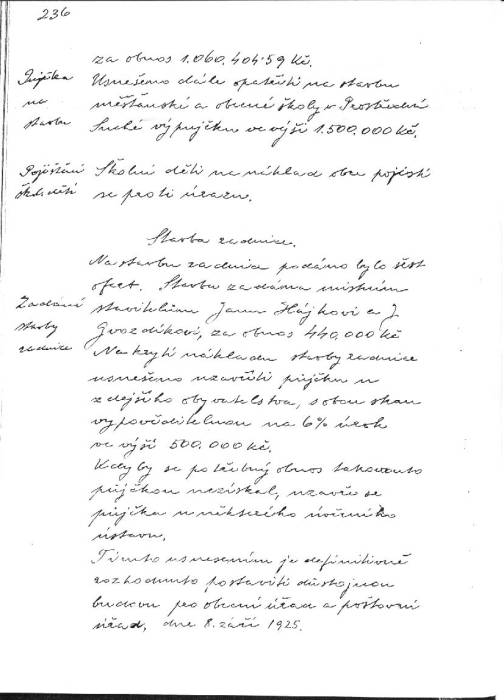 236
za obnos 1.060.404·59 Kč.
Půjčka
na
stavbu
Usnešeno dále opatřiti na stavbu
měšťanské a obecné školy v Prostřední
Suché výpujčku ve výši 1.500.000 Kč.
Pojištění
šk. dětí
Školní děti na náklad obce pojistí
se proti úrazu.
Stavba radnice.
Na stavbu radnice podáno bylo šest
ofert. Stavba zadána místním
Zadání
stavby
radnice
stavitelům Janu Hájkovi a J.
Gvozdíkovi, za obnos 440.000 Kč
Na krytí nákladu stavby radnice
usnešeno uzavříti půjčku u
zdejšího obyvatelstva, s obou stran
vypověditelnou na 6% úrok
ve výši 500.000 Kč.
Kdyby se potřebný obnos takovouto
půjčkou nezískal, uzavře se
půjčka u některého úvěrního
ústavu.
Tímto usnesením je definitivně
rozhodnuto postaviti důstojnou
budovu pro obecní úřad a poštovní
úřad, dne 8. září 1925.